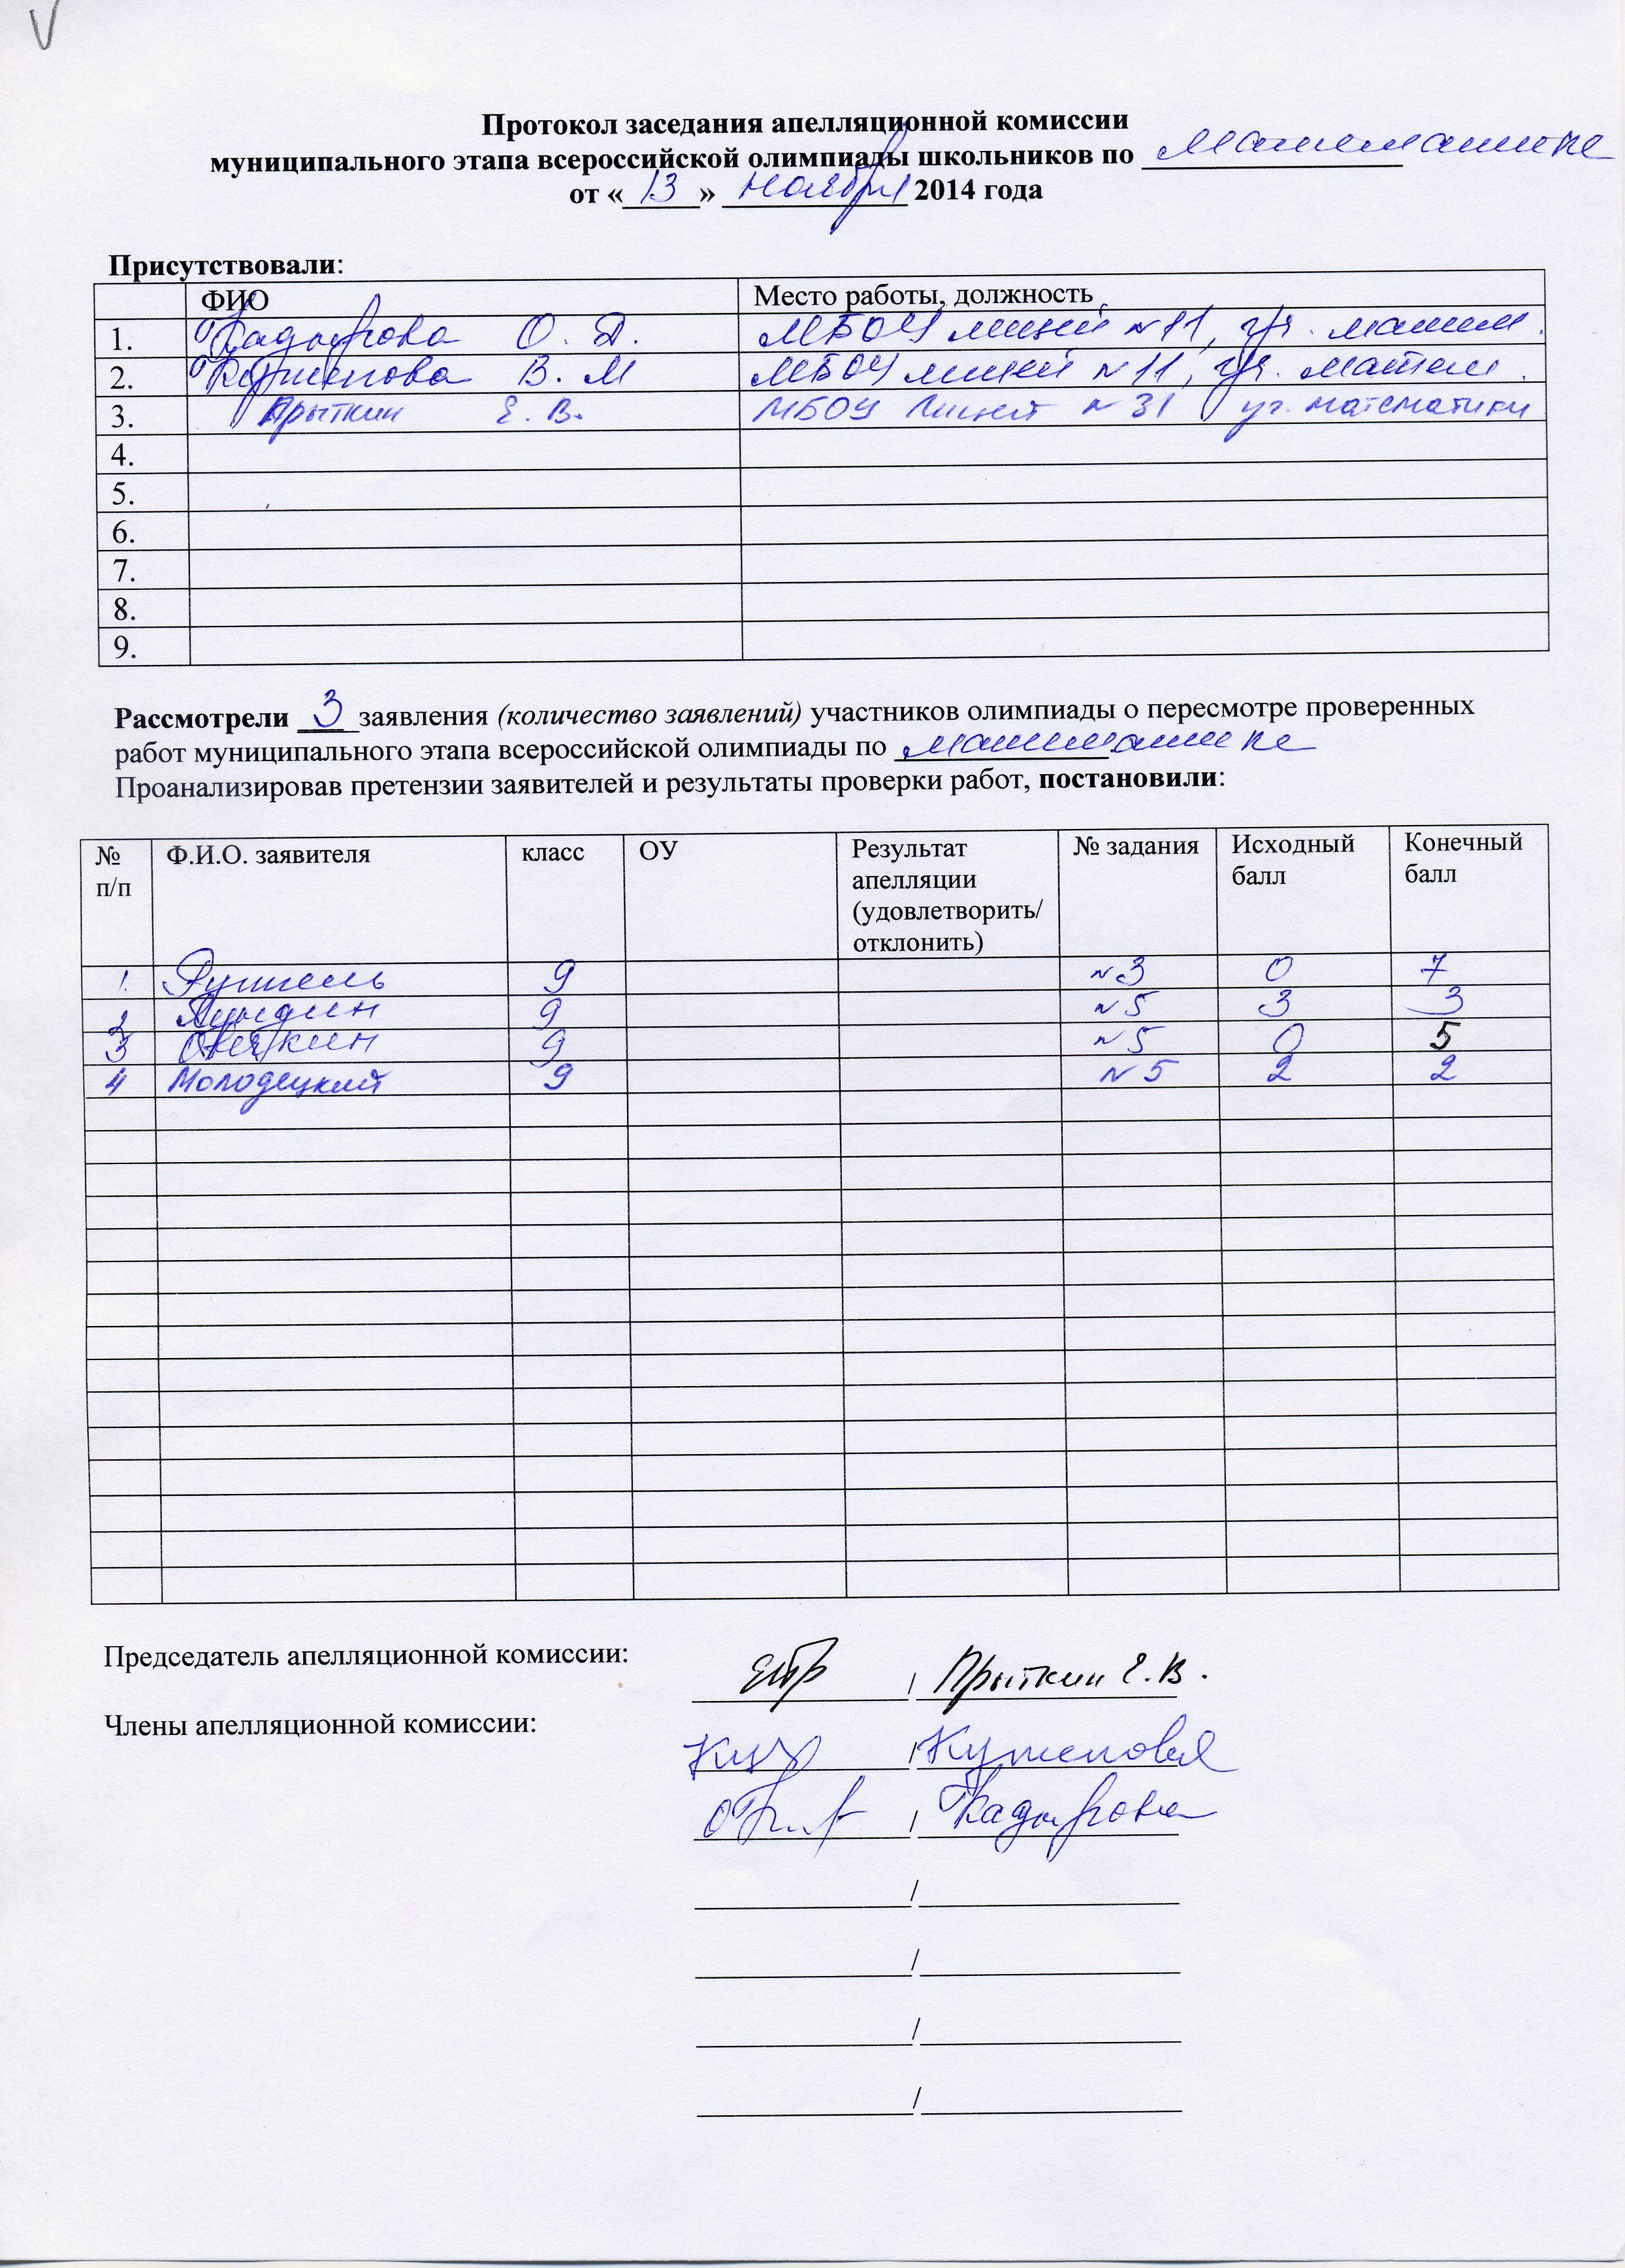 Протокол заседания апелляционной комиссии
муниципального этапа всероссийской олимпиады школьников по математике
от «13» ноября 2014 года
Присутствовали:
ФИО Место работы, должность
1. Кадырова О. Д. МБОУ лицей №11, уч. матем.
2. В. М МБОУ лицей №11, уч. матем.
3. Прыткин Е. В. МБОУ Лицей №31 уч. математики
4.
5.
6.
7.
8.
9.
Рассмотрели 3 заявления (количество заявлений) участников олимпиады о пересмотре проверенных
работ муниципального этапа всероссийской олимпиады по математике
Проанализировав претензии заявителей и результаты проверки работ, постановили:
№ п/п Ф.И.О. заявителя класс ОУ Результат апелляции (удовлетворить/ отклонить) № задания Исходный балл Конечный балл
1. 9 №3 0 7
2 9 №5 3 3
3 Овечкин 9 №5 0 5
4 Молодецкий 9 №5 2 2
Председатель апелляционной комиссии: / Прыткин Е. В.
Члены апелляционной комиссии: /
/ Кадырова
/
/
/
/